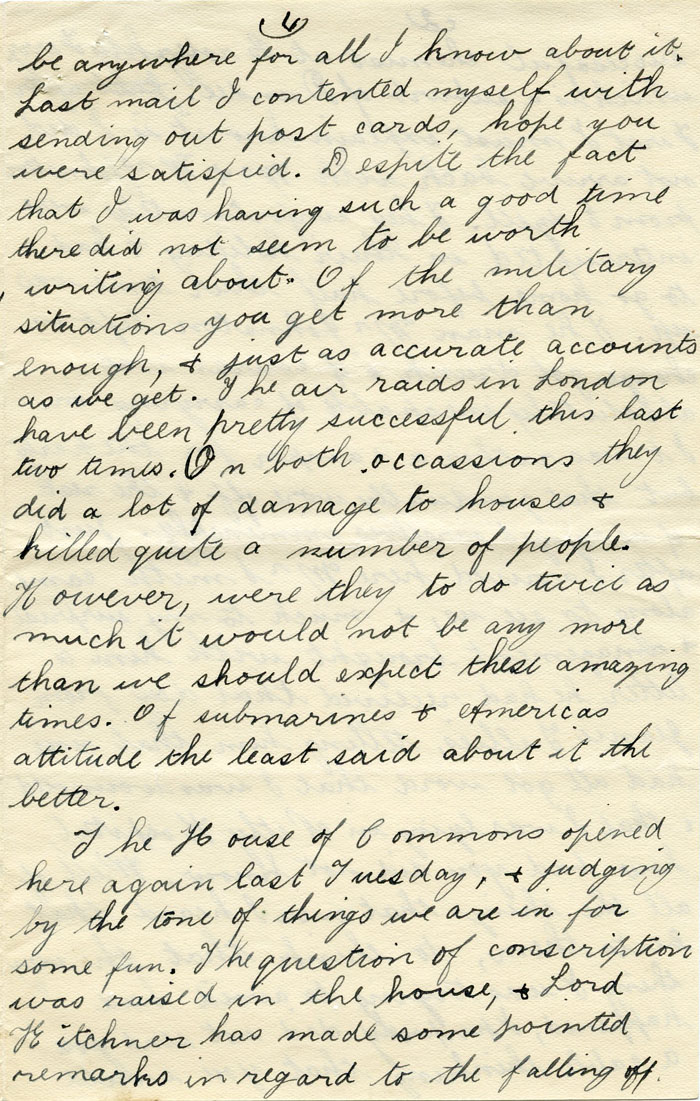 4
be anywhere for all I know about it.
Last mail I contented myself with
sending out post cards, hope you
were satisfied. Despite the fact
that I was having such a good time
there did not seem to be worth
writing about. Of the military
situations you get more than
enough, & just as accurate accounts
as we get. The air raids in London
have been pretty successful this last
two times. On both occassions they
did a lot of damage to houses &
killed quite a number of people.
However, were they to do twice as
much it would not be any more
than we should expect these amazing
times. Of submarines & Americas
attitude the least said about it the
better.
The House of Commons opened
here again last Tuesday, & judging
by the tone of things we are in for
some fun. The question of conscription
was raised in the house, & Lord
Kitchner has made some pointed
remarks in regard to the falling off.